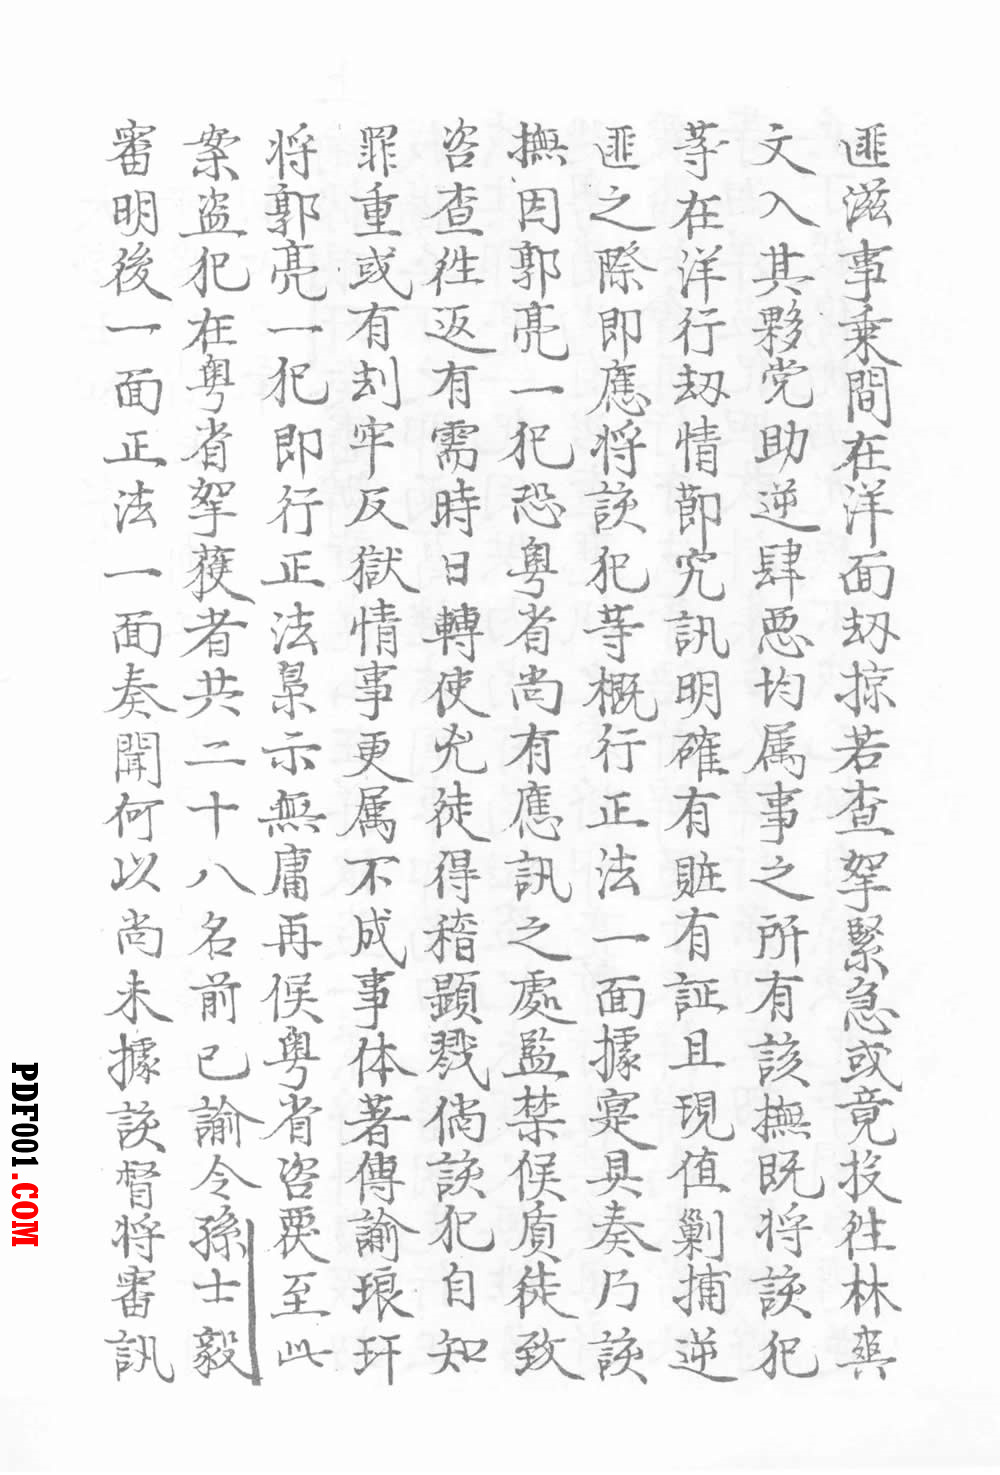 匪滋事乗間在洋面刼掠若查拏緊急或竟投徃林爽
文入其夥党助逆肆惡均属事之所有該撫既将該犯
等在洋行刼情節究訊明確有賍有証且現值剿捕逆
匪之際即應将該犯等概行正法一面據寔具奏乃該
撫因郭亮一犯恐粤省尚有應訊之處監禁候质徒致
咨查徃返有需時日轉使兇徒得稽顕戮倘該犯自知
罪重或有刦牢反獄情事更属不成事体著傳諭琅玕
将郭亮一犯即行正法梟示無庸再候粤省咨覆至此
案盗犯在粤省拏獲者共二十八名前已諭令孫士毅
審明後一面正法一面奏聞何以尚未據該督将審訊
PDF001.COM